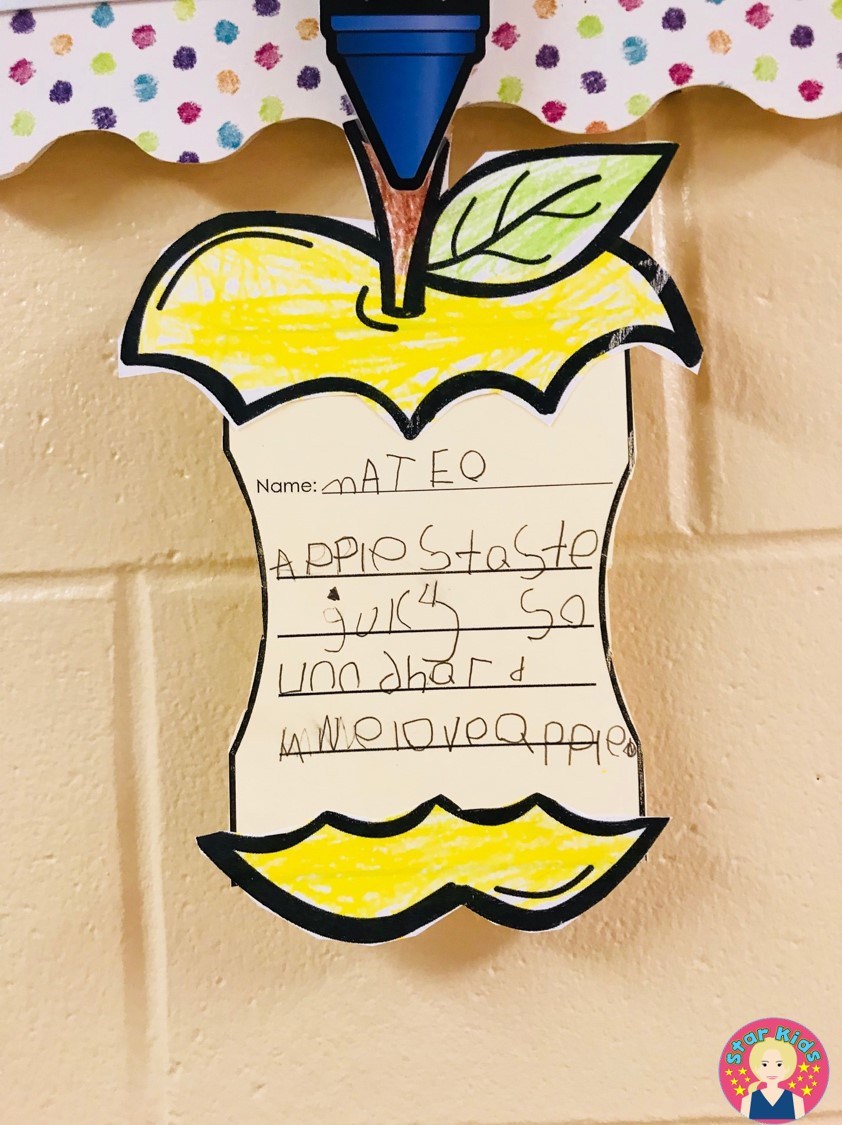 Name: mATEO
APPles taste
juicy so
unn dhard
We love Apples
Star Kids